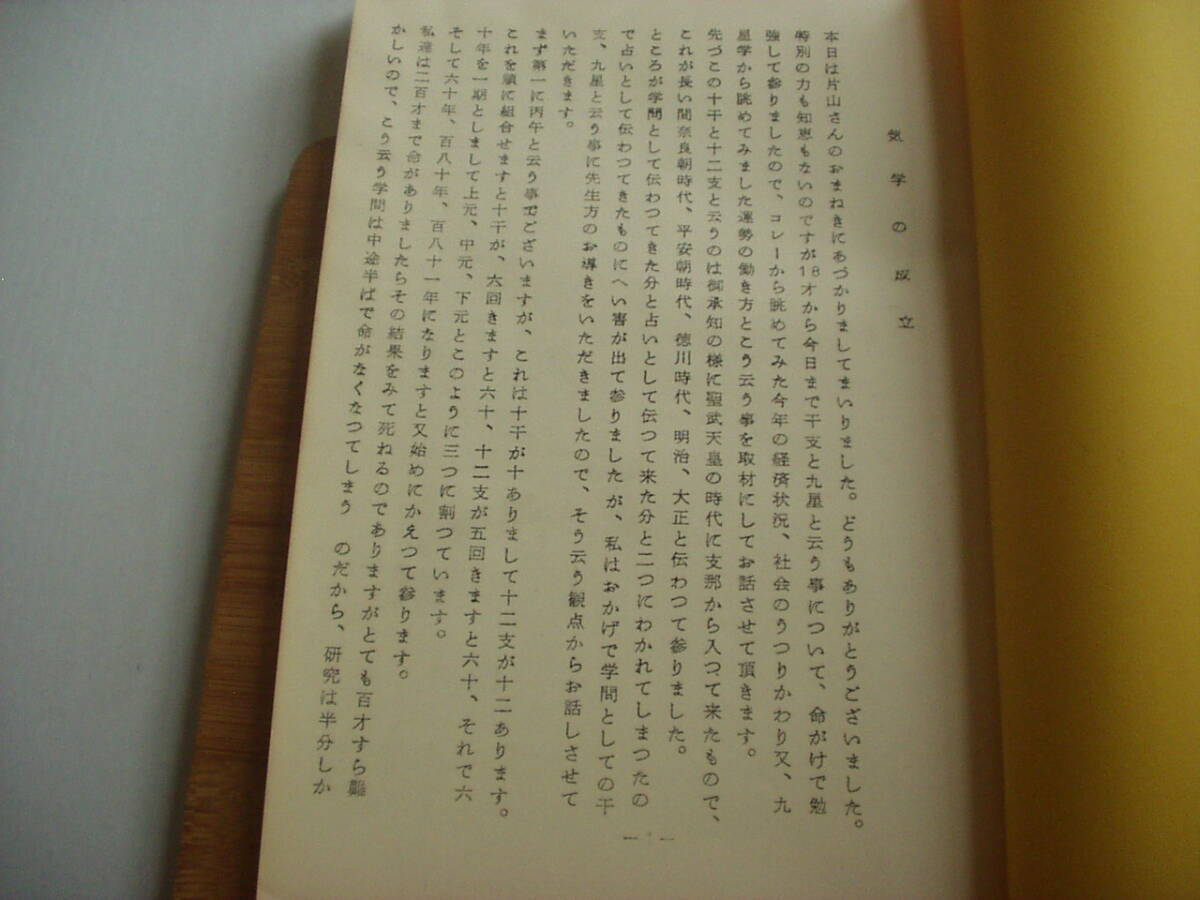 気学の成立
本日は片山さんのおまねきにあづかりましてまいりました。どうもありがとうございました。
特別の力も知恵もないのですが18才から今日まで干支と九星と云う事について、命がけで勉
強して参りましたので、コレーから眺めてみた今年の経済状況、社会のうつりかわり又、九
星学から眺めてみました運勢の働き方とこう云う事を取材にしてお話させて頂きます。
先づこの十干と十二支と云うのは御承知の様に聖武天皇の時代に支那から入つて来たもので、
これが長い間奈良朝時代、平安朝時代、徳川時代、明治、大正と伝わつて参りました。
ところが学問として伝わつてきた分と占いとして伝つて来た分と二つにわかれてしまつたの
で占いとして伝わつてきたものにへい害が出て参りましたが、私はおかげで学問としての干
支、九星と云う事に先生方のお導きをいただきましたので、そう云う観点からお話しさせて
いただきます。
まず第一に丙午と云う事でございますが、これは十干が十ありまして十二支が十二あります。
これを順に組合せますと十干が、六回きますと六十、十二支が五回きますと六十、それで六
十年を一期としまして上元、中元、下元とこのように三つに割つています。
そして六十年、百八十年、百八十一年になりますと又始めにかえつて参ります。
私達は二百才まで命がありましたらその結果をみて死ねるのでありますがとても百才すら難
かしいので、こう云う学問は中途半ばで命がなくなつてしまう のだから、研究は半分しか